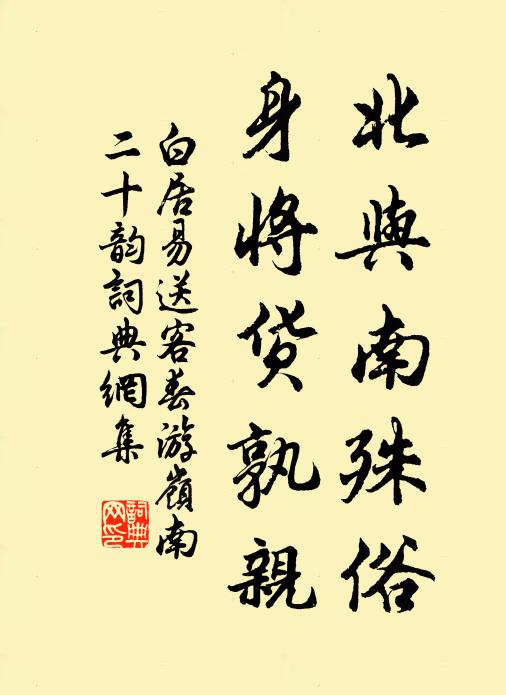 北與南殊俗
身將货孰親
白居易送客春游嶺南
二十韵詞典網集
詞典
网印